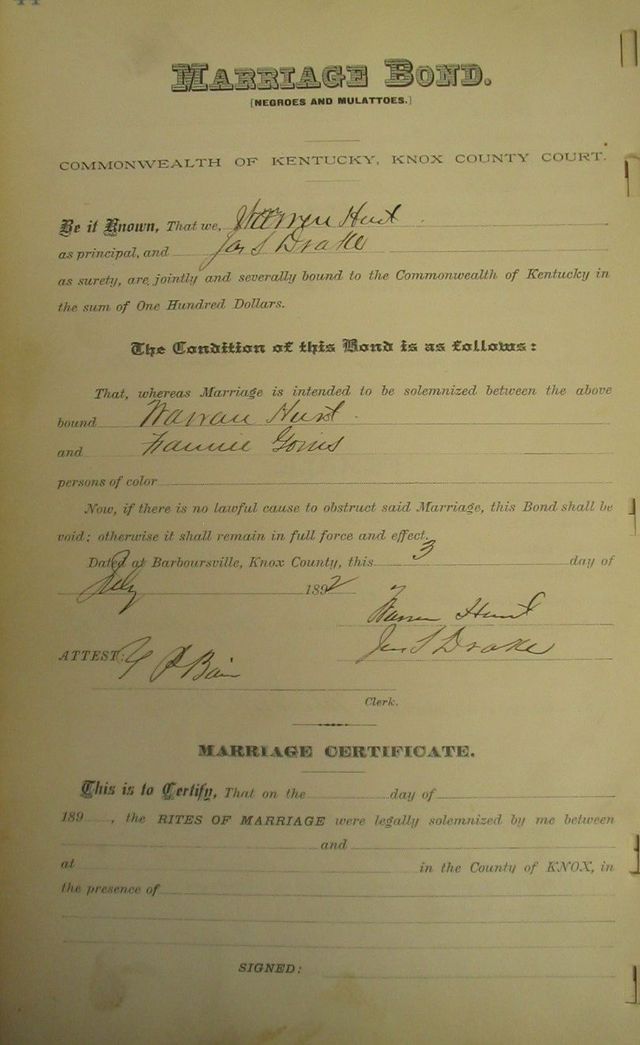 44
MARRIAGE BOND.
[NEGROES AND MULATTOES.]
COMMONWEALTH OF KENTUCKY, KNOX COUNTY COURT.
Be it Known, That we, Warren Hunt
as principal, and Jas S Drake
as surety, are jointly and severally bound to the Commonwealth of Kentucky in
the sum of One Hundred Dollars.
The Condition of this Bond is as follows:
That, whereas Marriage is intended to be solemnized between the above
bound Warran Hunt
and Fannie Goins
persons of color
Now, if there is no lawful cause to obstruct said Marriage, this Bond shall be
void; otherwise it shall remain in full force and effect.
Dated at Barboursville, Knox County, this 3 day of
July 1892
Warren Hunt
ATTEST: Jas S Drake
Clerk.
MARRIAGE CERTIFICATE.
This is to Certify, That on the day of
189 , the RITES OF MARRIAGE were legally solemnized by me between
and
at in the County of KNOX, in
the presence of
SIGNED: